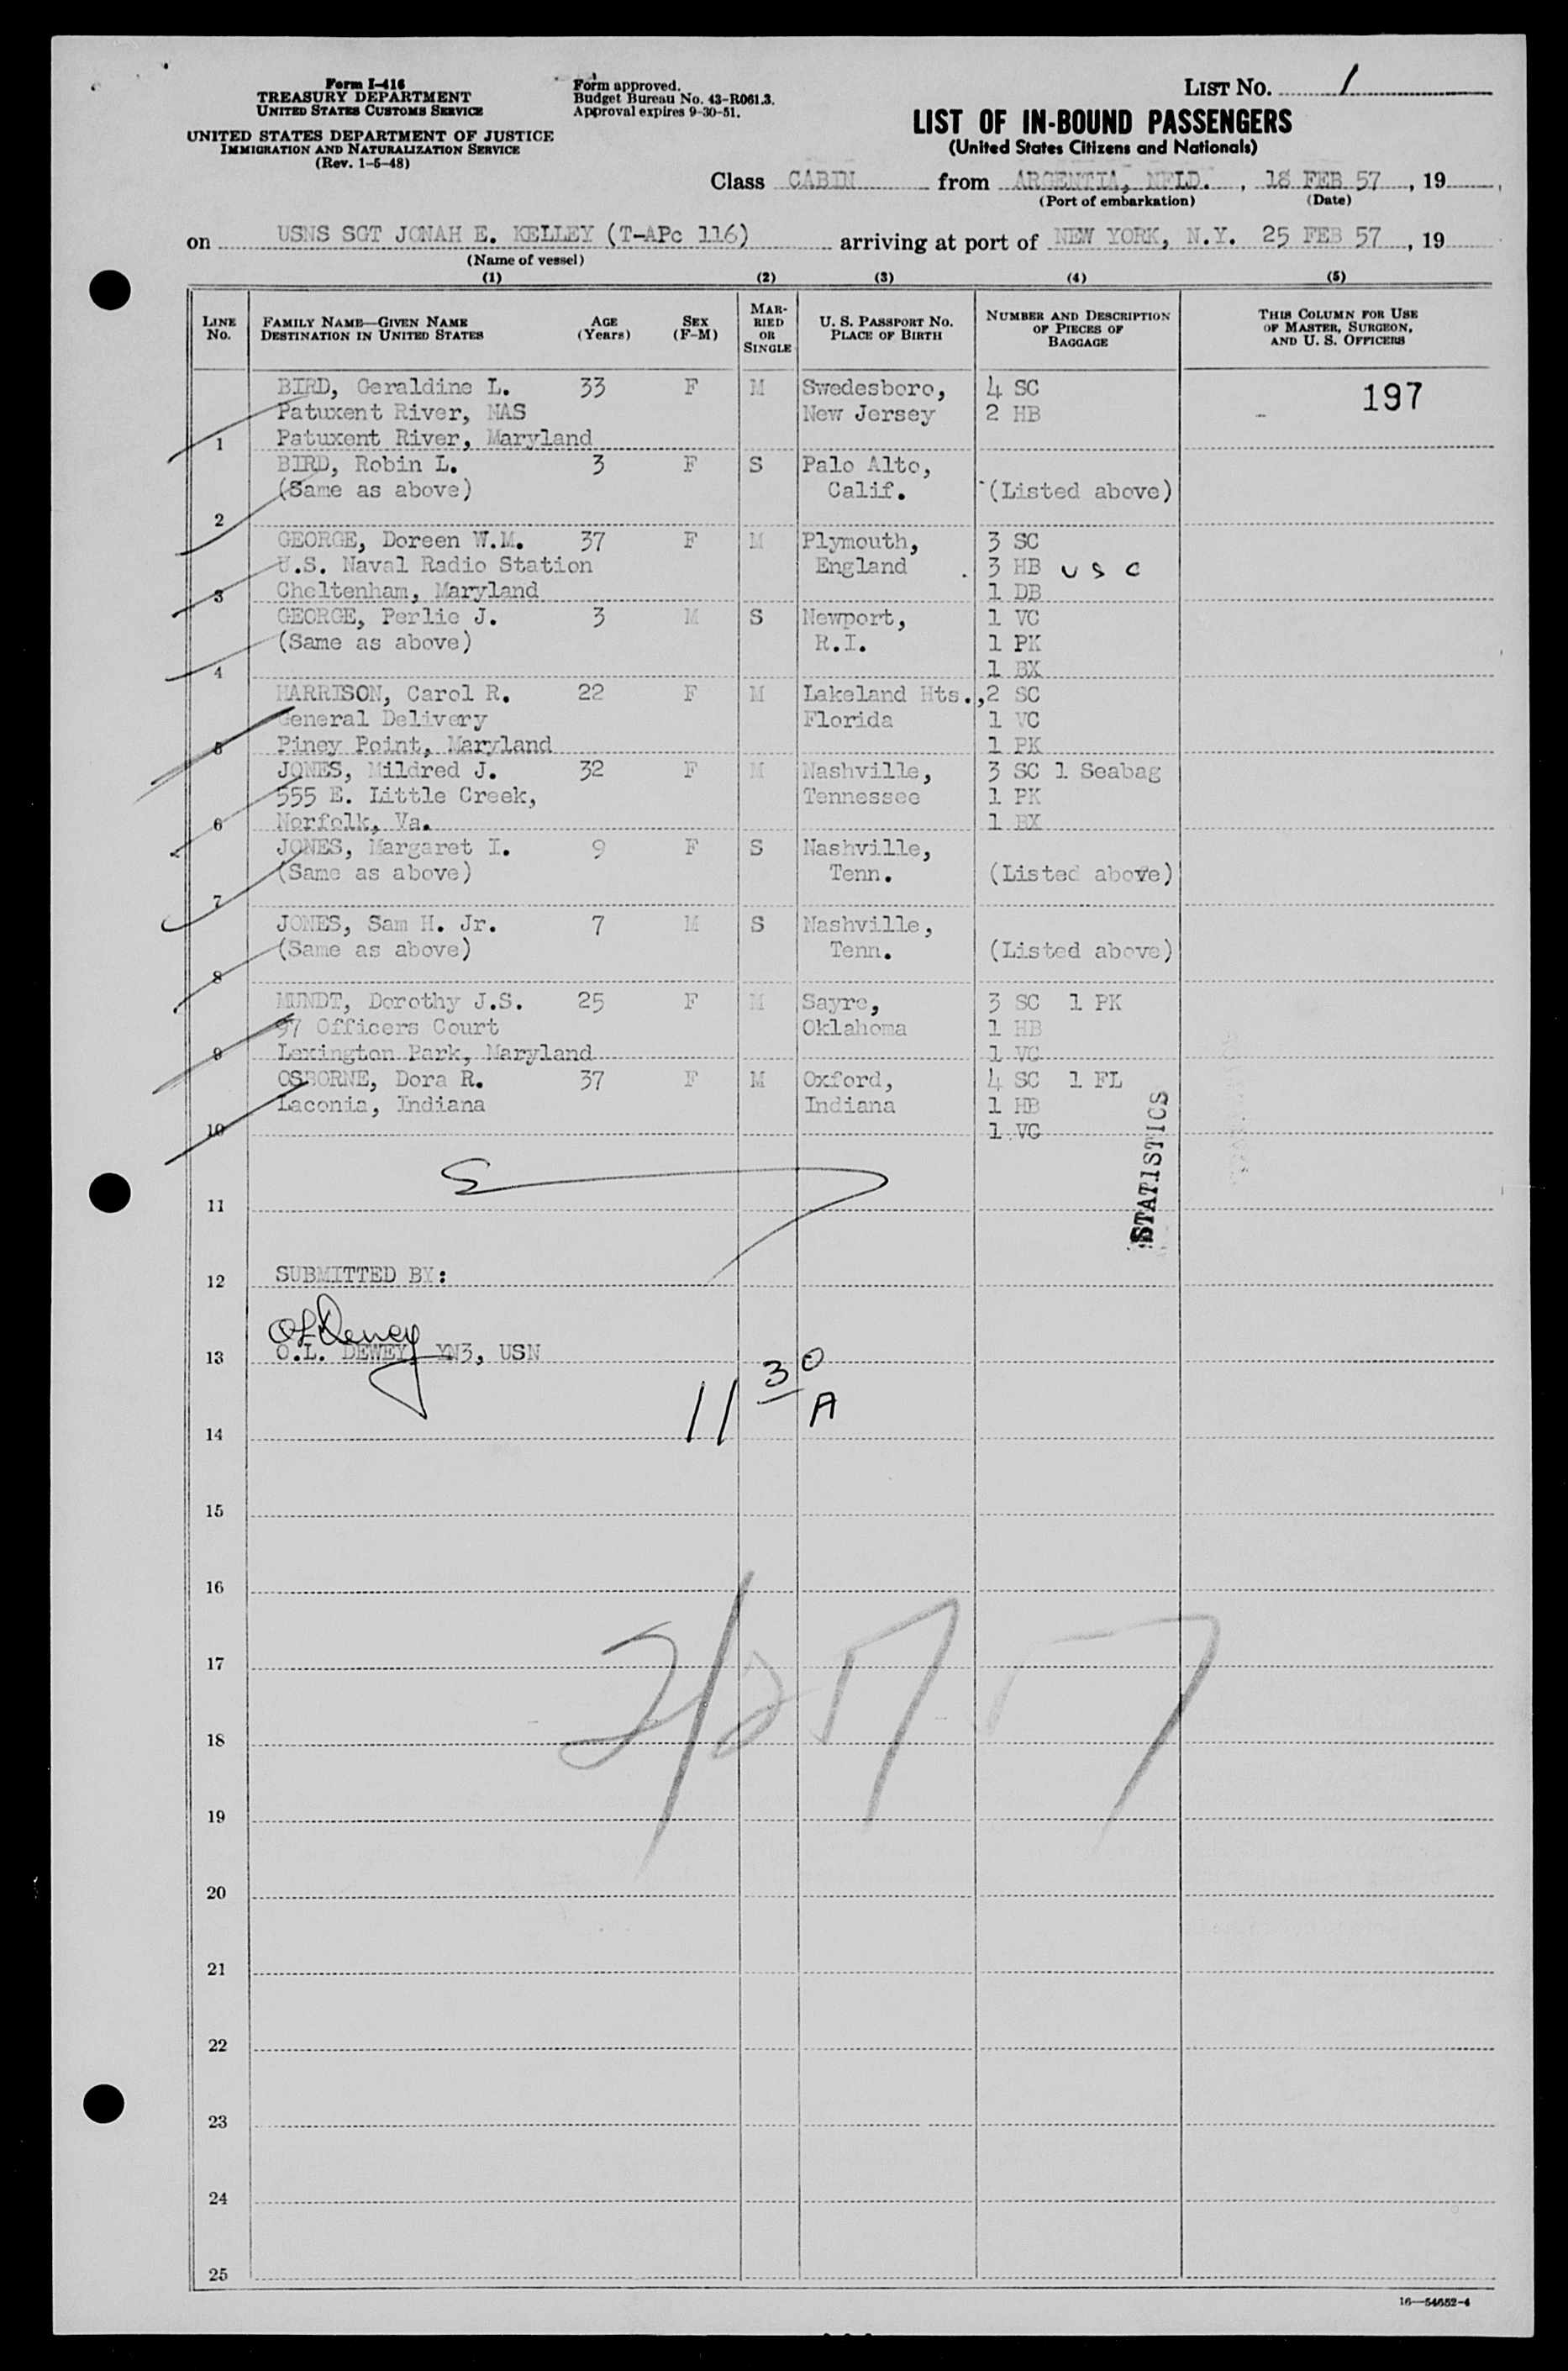 Form I-416
TREASURY DEPARTMENT
UNITED STATES CUSTOMS SERVICE
UNITED STATES DEPARTMENT OF JUSTICE
IMMIGRATION AND NATURALIZATION SERVICE
(Rev. 1-5-48)
Form approved.
Budget Bureau No. 43-R061.3.
Approval expires 9-30-51.
LIST No. 1
LIST OF IN-BOUND PASSENGERS
(United States Citizens and Nationals)
Class CABIN from ARGENTIA, NFLD. , 18 FEB 57 , 19
(Port of embarkation) (Date)
on USNS SGT JONAH E. KELLEY (T-APc 116) arriving at port of NEW YORK, N.Y. 25 FEB 57 , 19
(Name of vessel)
(1) (2) (3) (4) (5)
LINE No. FAMILY NAME—GIVEN NAME DESTINATION IN UNITED STATES AGE (Years) SEX (F-M) MARRIED OR SINGLE U. S. PASSPORT No. PLACE OF BIRTH NUMBER AND DESCRIPTION OF PIECES OF BAGGAGE THIS COLUMN FOR USE OF MASTER, SURGEON, AND U. S. OFFICERS
BIRD, Geraldine L. 33 F M Swedesboro, 4 SC 197
Patuxent River, NAS New Jersey 2 HB
1 Patuxent River, Maryland
BIRD, Robin L. 3 F S Palo Alto,
(Same as above) Calif. (Listed above)
2
GEORGE, Doreen W.M. 37 F M Plymouth, 3 SC
U.S. Naval Radio Station England 3 HB U S C
3 Cheltenham, Maryland 1 DB
GEORGE, Perlie J. 3 M S Newport, 1 VC
(Same as above) R.I. 1 PK
4 1 BX
HARRISON, Carol R. 22 F M Lakeland Hts., 2 SC
General Delivery Florida 1 VC
5 Piney Point, Maryland 1 PK
JONES, Mildred J. 32 F M Nashville, 3 SC 1 Seabag
555 E. Little Creek, Tennessee 1 PK
6 Norfolk, Va. 1 BX
JONES, Margaret I. 9 F S Nashville,
(Same as above) Tenn. (Listed above)
7
JONES, Sam H. Jr. 7 M S Nashville,
(Same as above) Tenn. (Listed above)
8
MUNDT, Dorothy J.S. 25 F M Sayre, 3 SC 1 PK
97 Officers Court Oklahoma 1 HB
9 Lexington Park, Maryland 1 VC
OSBORNE, Dora R. 37 F M Oxford, 4 SC 1 FL
Laconia, Indiana Indiana 1 HB
10 1 VC
STATISTICS
11
12 SUBMITTED BY:
OLDewey
13 O.L. DEWEY, YN3, USN
11 30 A
14
15
16
17
18
19
20
21
22
23
24
25
16—54652-4